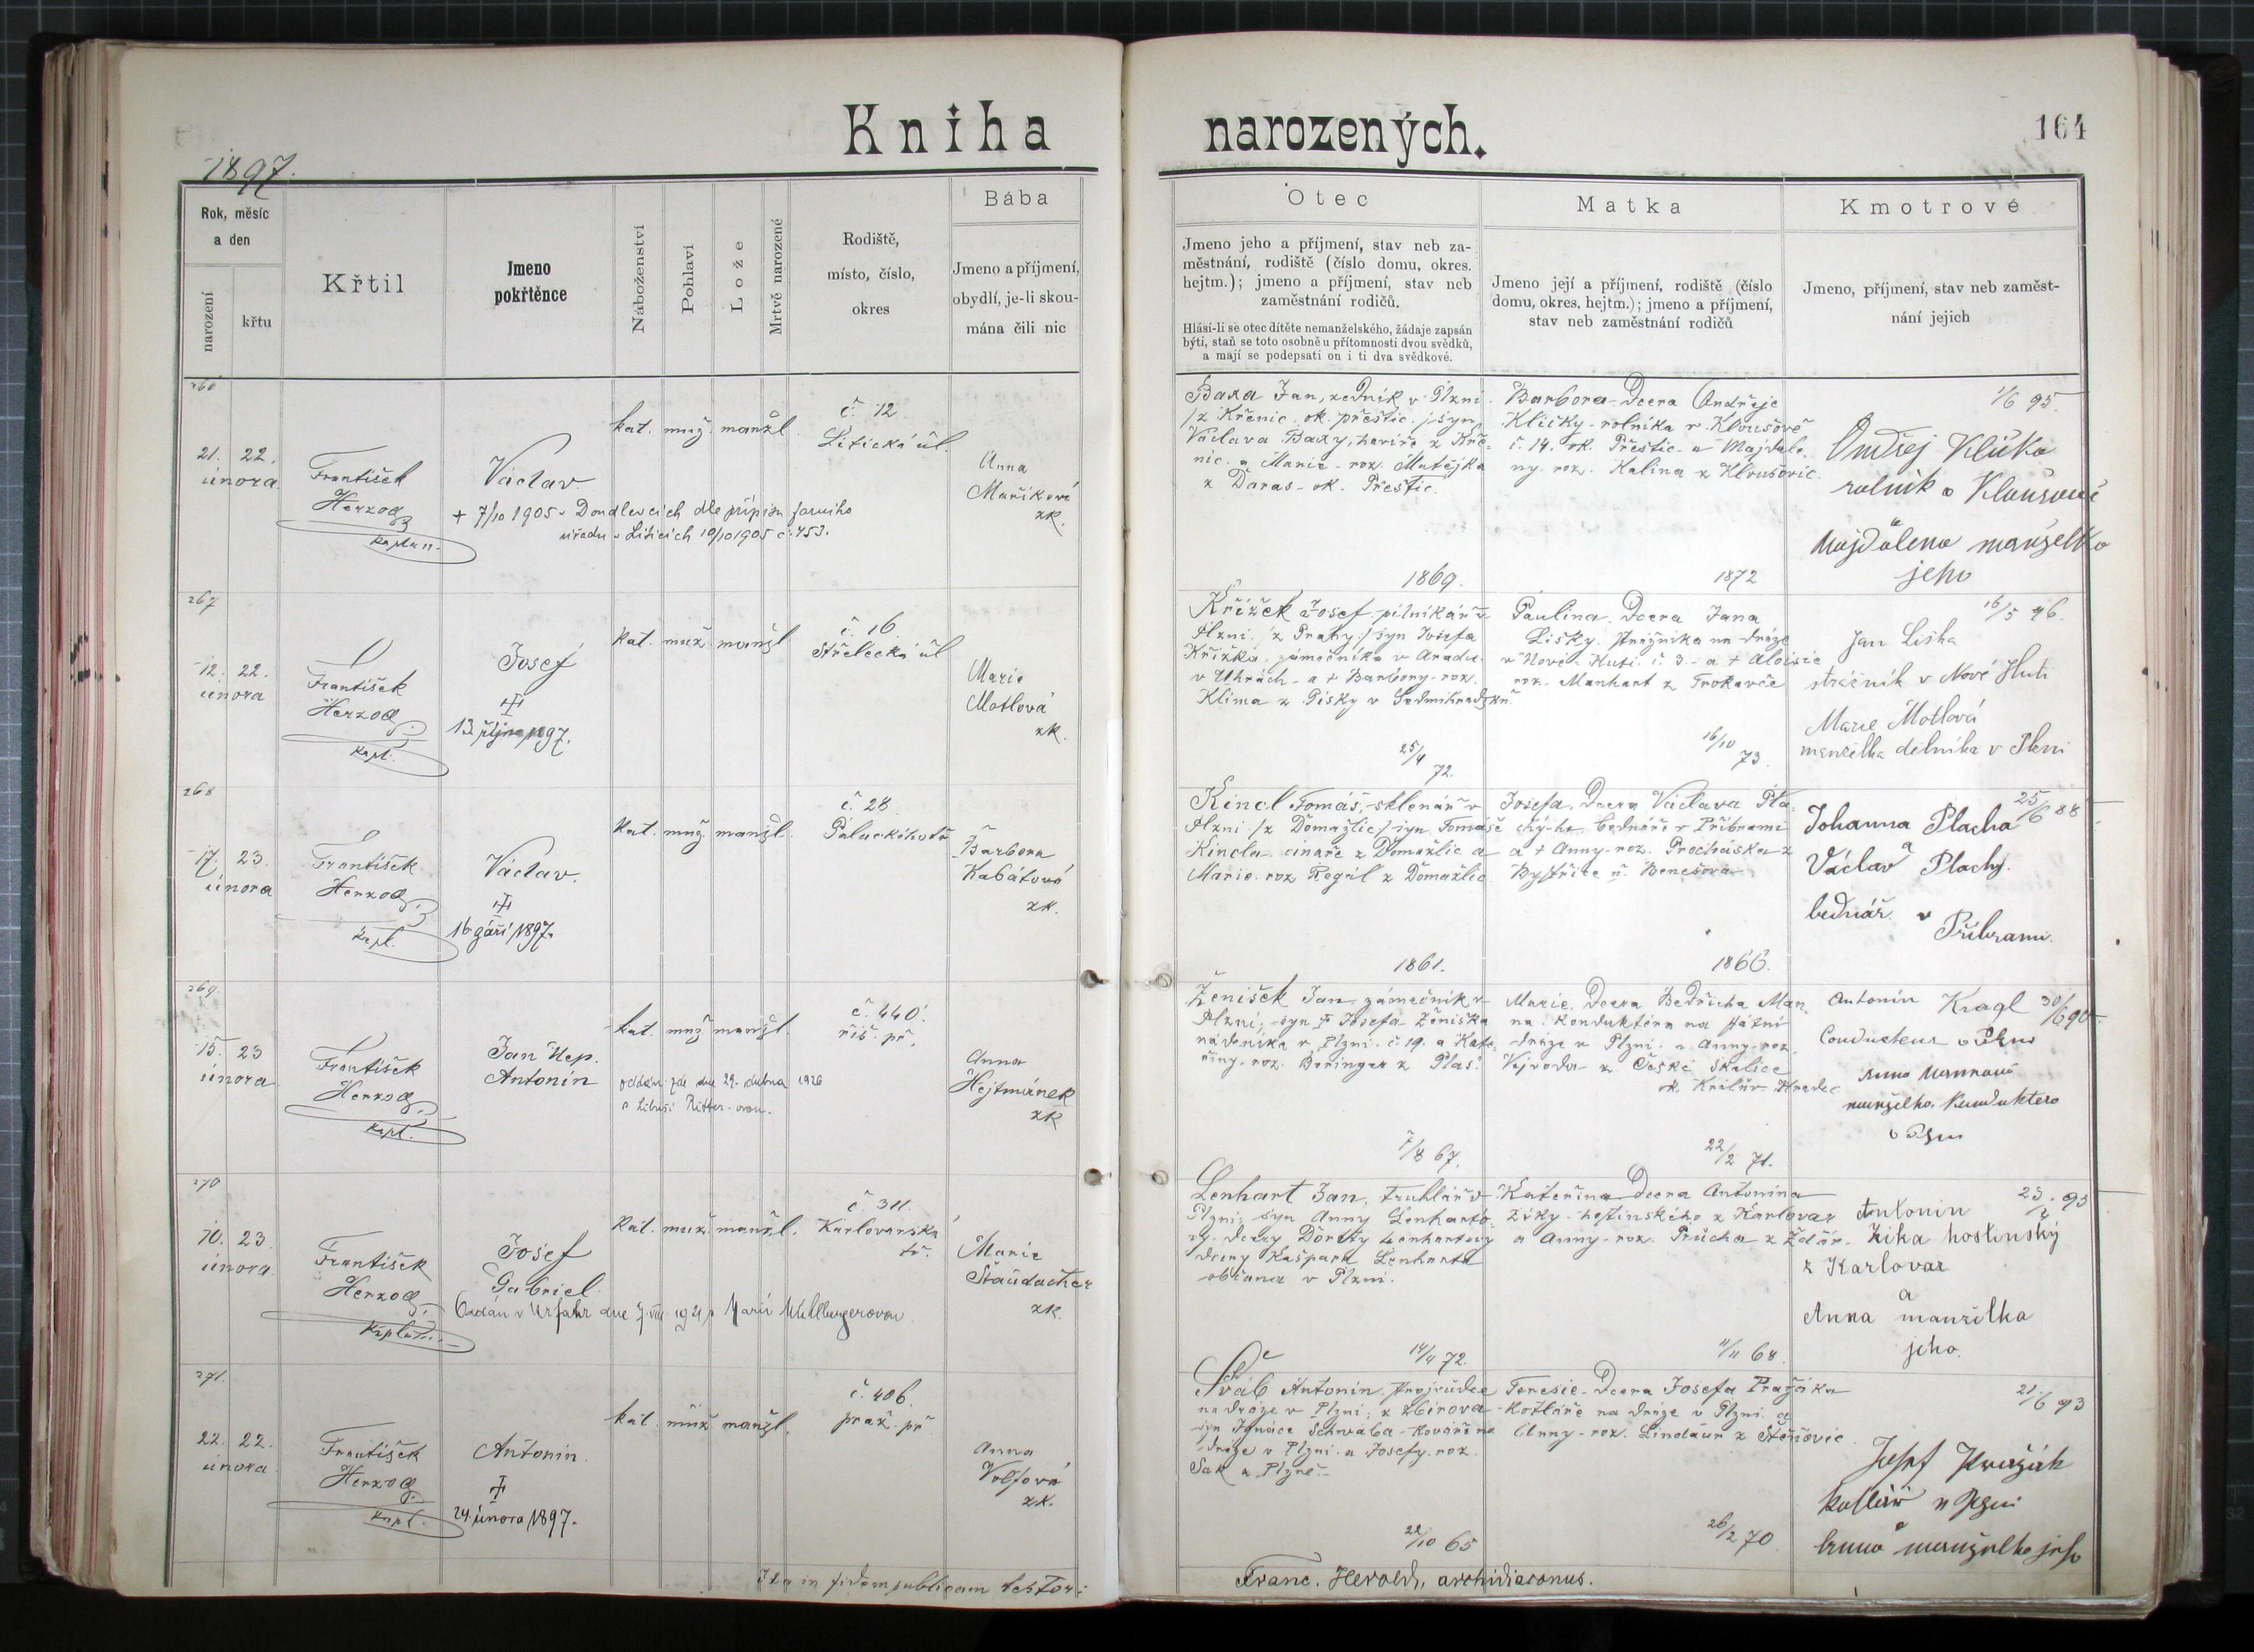 Kniha
narozených.
164
1897.
Rok, měsíc
a den
narození
křtu
Křtil
Jmeno
pokřtěnce
Náboženství
Pohlaví
Lože
Mrtvě narozené
Rodiště,
místo, číslo,
okres
Bába
Jmeno a příjmení,
obydlí, je-li skou-
mána čili nic
Otec
Jmeno jeho a příjmení, stav neb za-
městnání, rodiště (číslo domu, okres.
hejtm.); jmeno a příjmení, stav neb
zaměstnání rodičů.
Hlásí-li se otec dítěte nemanželského, žádaje zapsán
býti, staň se toto osobně u přítomnosti dvou svědků,
a mají se podepsati on i ti dva svědkové.
Matka
Jmeno její a příjmení, rodiště (číslo
domu, okres. hejtm.); jmeno a příjmení,
stav neb zaměstnání rodičů
Kmotrové
Jmeno, příjmení, stav neb zaměst-
nání jejich
21. 22.
února
František
Herzog
kaplan.
Václav
+ 7/10 1905 v Doudlevcích dle přípisu farního
úřadu v Liticích 10/10 1905 č. 453.
kat. muž. manžl.
č. 12
Litická ul.
Anna
Maříková
zk.
Baxa Jan, zedník v Plzni
/z Křenic ok. přeštic./ syn
Václava Baxy, havíře z Kře-
nic a Marie roz. Matějka
z Daras ok. Přeštic.
1869.
Barbora Dcera Ondřeje
Kličky rolníka v Kloušově
č. 14. ok. Přeštic a Majdale-
ny roz. Kalina z Kloušovic.
1872
1/6 95.
Ondřej Klička
rolník
a
Majdalena manželka
jeho
267
12. 22.
února
František
Herzog
kapl.
Josef
13. října 1897.
kat. muž. manžl
č. 16
Střelecká ul
Marie
Motlová
zk.
Křížek Josef pilníkář v
Plzni /z Prahy/ syn Josefa
Křížka, zámečníka v Aradu
v Uhrách a + Barbory roz.
Klíma z Písky v
25/4 72.
Paulina Dcera Jana
Lišky strážníka na dráze
v Nové Huti č. 3. a + Aloisie
roz. Manhart z Trokavče
16/10 73.
16/5 96.
Jan Liška
strážník v Nové Huti
Marie Motlová
manželka dělníka v Plzni
268
17. 23.
února
František
Herzog
kapl.
Václav.
16. září 1897.
kat. muž. manžl.
č. 28
Palackého tř.
Barbora
Kabátová
zk.
Kincl Tomáš, sklenář v
Plzni /z Domažlic/ syn Tomáše
Kincla cínaře z Domažlic a
Marie roz. Regál z Domažlic
1861.
Josefa, Dcera Václava Pla-
chýho bednáře v Příbrami
a + Anny roz. Procháska z
Bystřice u Benešova
1866.
25/6 88
Johanna Placha
a
Václav Plachý
bednář v
Příbrami.
269.
15. 23
února
František
Herzog
kapl.
Jan Nep.
Antonín
oddán zde dne 29. dubna 1926
s Libuší Ritter-ovou.
kat. muž. manžl.
č. 440.
říš. př.
Anna
Hejtmánek
zk
Ženíšek Jan zámečník v
Plzni, syn + Josefa Ženíška
nádeníka v Plzni č. 19. a Kate-
řiny roz. Beringer z Plas.
7/8 67.
Marie, Dcera Bedřicha Man-
na konduktéra na státní
dráze v Plzni a Anny roz.
Vejvoda z České Skalice
ok. Králův Hradec
22/2 71.
30/6 90
Antonín Kragl
Conducteur v Plzni
Anna Mannová
manželka konduktera
v Plzni
270
10. 23.
února
František
Herzog
Josef
Gabriel
Oddán v Urfahr dne 7. VIII. 1921 s Marií Mühlburgerovou.
kat. muž. manžl.
č. 311.
Karlovarská
tř.
Marie
Štaudacher
zk.
Lenhart Jan, truhlář v
Plzni, syn Anny Lenharto-
vy, dcery Doroty Lenhartovy
dcery Kašpara Lenharta
občana v Plzni.
14/4 72.
Kateřina Dcera Antonína
Ziky hostinského z Karlovar
a Anny roz. Průcha z Ždár
11/11 68
Antonin
Zika hostinský
z Karlovar
a
Anna manželka
jeho.
271.
22. 22.
února
František
Herzog
kapl.
Antonín
24. února 1897.
kat. muž manžl.
č. 406.
praž. př
Anna
Volfová
zk.
Šváb Antonín průvodce
na dráze v Plzni, z Zbirova
syn Ignáce Schwába kováře na
dráze v Plzni a Josefy roz.
Sak z Plzně
22/10 65
Teresie Dcera Josefa Pražáka
kotláře na dráze v Plzni a
Anny roz. Lindaur z Štěnovic
26/2 70
21/6 93
Josef Pražák
kotlář v Plzni
a
Anna manželka jeho
Ita in fidem publicam testor:
Franc. Herold, archidiaconus.